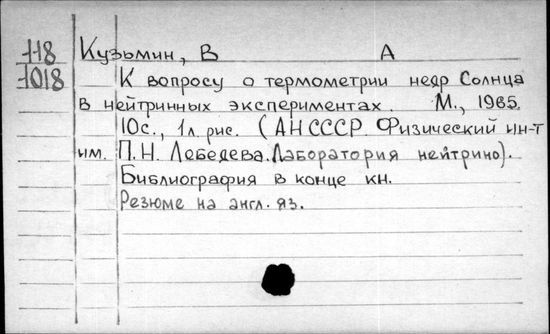 118 Кузьмин, В А
1018 К вопросу о термометрии недр Солнца
в нейтринных экспериментах. М., 1965.
10с., 1л. рис. (АН СССР. Физический ин-т
им. П.Н. Лебедева. Лаборатория нейтрино).
Библиография в конце кн.
Резюме на англ. яз.